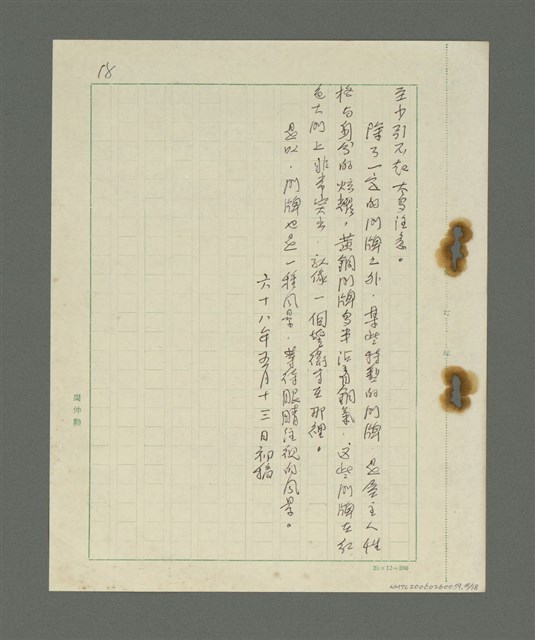 18
至少引不起太多注意。
除了一定的門牌之外，某些特製的門牌是屋主人性
格与身分的炫耀，黃銅門牌多半沾着銅氣，这些門牌在紅
色大門上非常突出，就像一個警衛守在那裡。
是以，門牌也是一種风景，等待眼睛注視的风景。
六十八年五月十三日初稿
周仲勳
25×12=300